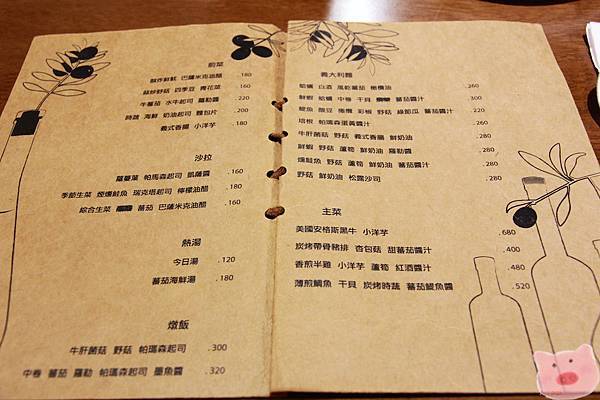 前菜
酥炸鮮魷 巴薩米克油醋 .180
蒜炒野菇 四季豆 青花菜 .160
牛蕃茄 水牛起司 羅勒醬 .220
時蔬 海鮮 奶油起司 麵包片 .200
義式香腸 小洋芋 .180
沙拉
蘿蔓葉 帕馬森起司 凱薩醬 .160
季節生菜 煙燻鮭魚 瑞克塔起司 檸檬油醋 .180
綜合生菜 蕃茄 巴薩米克油醋 .160
熱湯
今日湯 .120
蕃茄海鮮湯 .180
燉飯
牛肝菌菇 野菇 帕瑪森起司 .300
中卷 蕃茄 羅勒 帕瑪森起司 墨魚醬 .320
義大利麵
蛤蠣 白酒 風乾蕃茄 橄欖油 .260
鮮蝦 蛤蠣 中卷 干貝 蕃茄醬汁 .300
鯷魚 酸豆 橄欖 彩椒 野菇 綠節瓜 蕃茄醬汁 .220
培根 帕瑪森蛋黃醬汁 .260
牛肝菌菇 野菇 義式香腸 鮮奶油 .280
鮮蝦 野菇 蘆筍 鮮奶油 羅勒醬 .280
燻鮭魚 野菇 蘆筍 鮮奶油 蕃茄醬汁 .280
野菇 鮮奶油 松露沙司 .280
主菜
美國安格斯黑牛 小洋芋 .680
炭烤帶骨豬排 杏包菇 甜蕃茄醬汁 .400
香煎半雞 小洋芋 蘆筍 紅酒醬汁 .480
薄煎鯛魚 干貝 炭烤時蔬 蕃茄鯷魚醬 .520